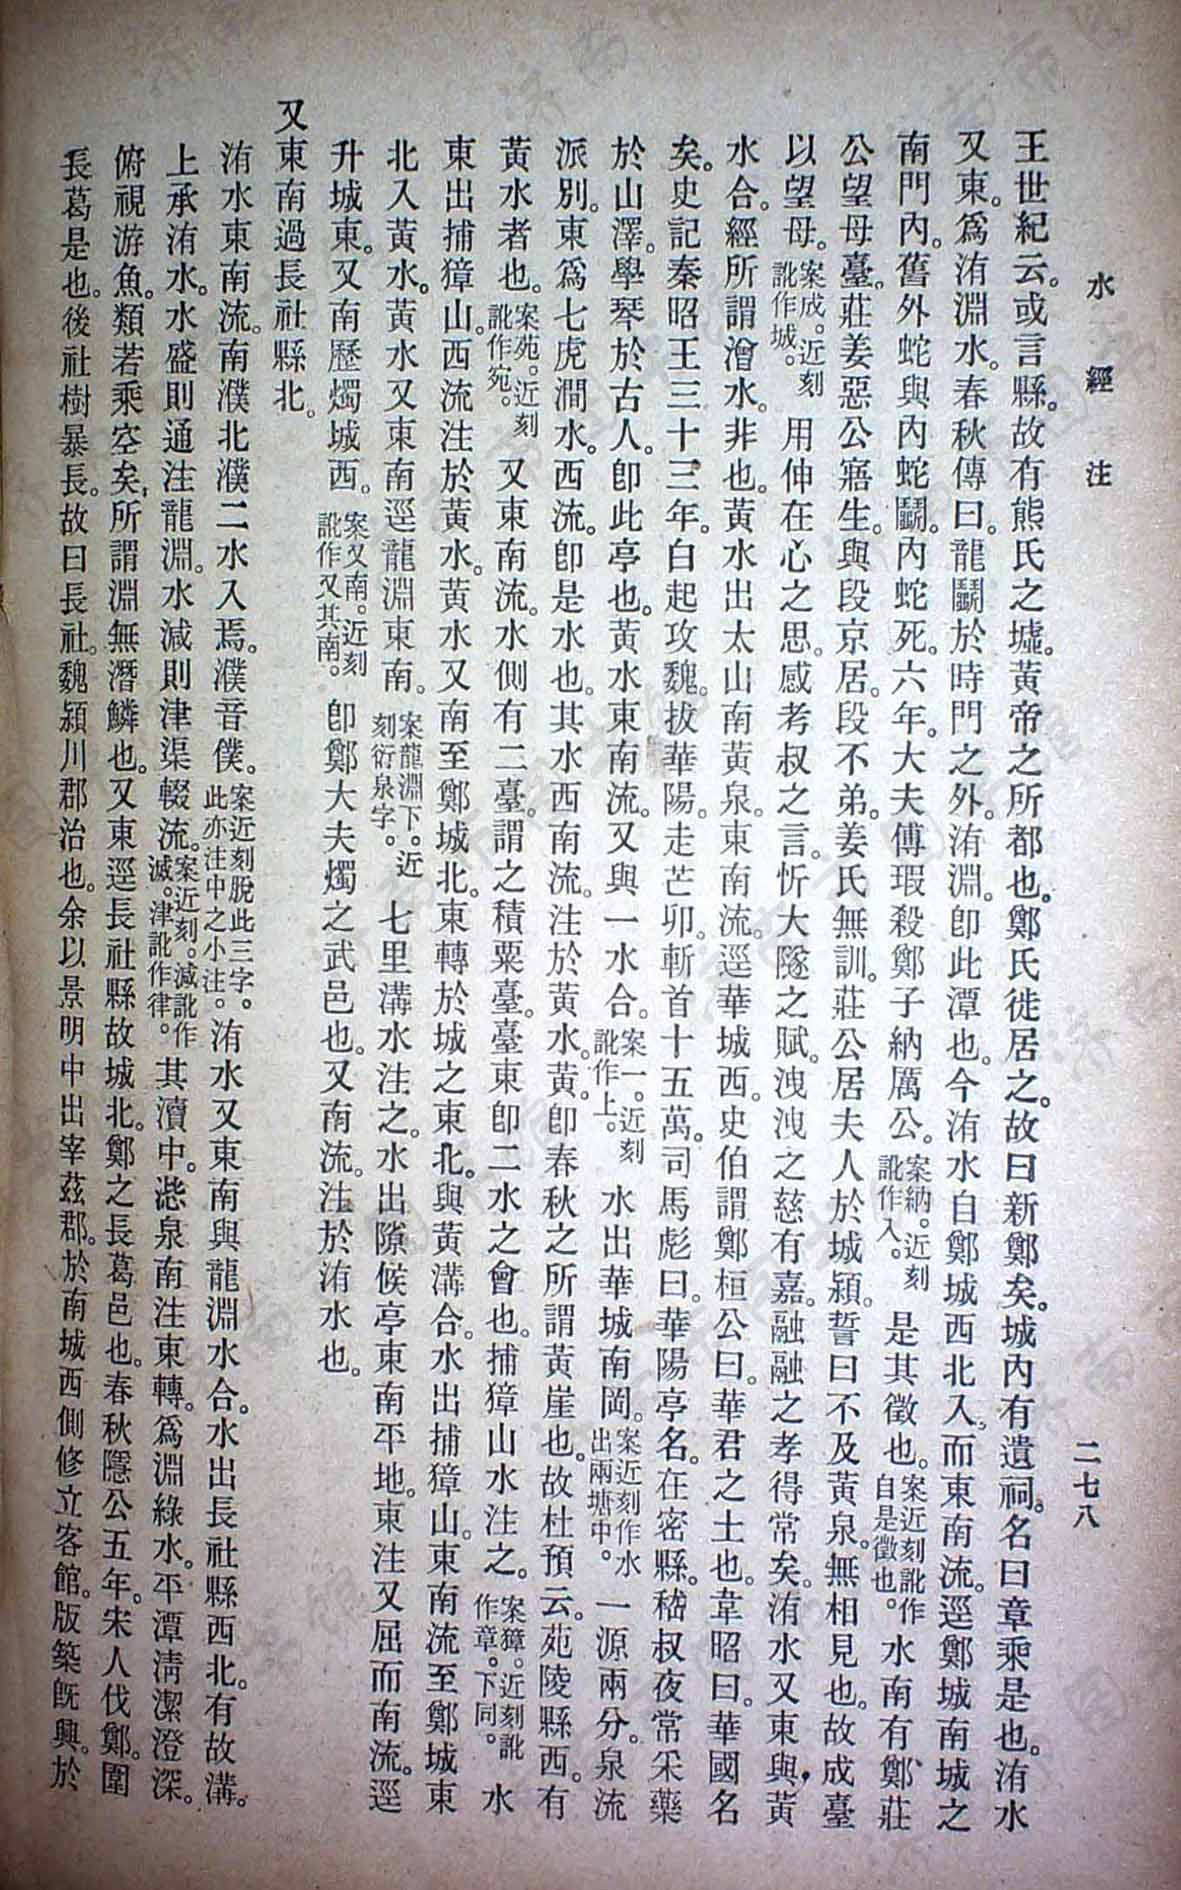 水經注
二七八
王世紀云。或言縣。故有熊氏之墟。黃帝之所都也。鄭氏徙居之。故曰新鄭矣。城內有遺祠。名曰章乘是也。洧水
又東。爲洧淵水。春秋傳曰。龍鬭於時門之外。洧淵。卽此潭也。今洧水自鄭城西北入。而東南流。逕鄭城南城之
南門內。舊外蛇與內蛇鬭。內蛇死。六年。大夫傅瑕殺鄭子納厲公。案納。近刻訛作入。是其徵也。案近刻訛作自是徵也。水南有鄭莊
公望母臺。莊姜惡公寤生。與段京居。段不弟。姜氏無訓。莊公居夫人於城潁。誓曰不及黃泉。無相見也。故成臺
以望母。案成。近刻訛作城。用伸在心之思。感考叔之言。忻大隧之賦。洩洩之慈有嘉。融融之孝得常矣。洧水又東與黃
水合。經所謂潧水。非也。黃水出太山南黃泉。東南流。逕華城西。史伯謂鄭桓公曰。華君之土也。韋昭曰。華國名
矣。史記秦昭王三十三年。白起攻魏。拔華陽。走芒卯。斬首十五萬。司馬彪曰。華陽亭名。在密縣。嵇叔夜常采藥
於山澤。學琴於古人。卽此亭也。黃水東南流。又與一水合。案一。近刻訛作上。水出華城南岡。案近刻作水出兩塘中。一源兩分。泉流
派別。東爲七虎澗水。西流。卽是水也。其水西南流。注於黃水。黃。卽春秋之所謂黃崖也。故杜預云。苑陵縣西。有
黃水者也。案苑。近刻訛作宛。又東南流。水側有二臺。謂之積粟臺。臺東卽二水之會也。捕獐山水注之。案獐。近刻訛作章。下同。水
東出捕獐山。西流注於黃水。黃水又南至鄭城北。東轉於城之東北。與黃溝合。水出捕獐山。東南流至鄭城東
北入黃水。黃水又東南逕龍淵東南。案龍淵下。近刻衍泉字。七里溝水注之。水出隙候亭東南平地。東注又屈而南流。逕
升城東。又南歷燭城西。案又南。近刻訛作又其南。卽鄭大夫燭之武邑也。又南流。注於洧水也。
又東南過長社縣北。
洧水東南流。南濮北濮二水入焉。濮音僕。案近刻脫此三字。此亦注中之小注。洧水又東南與龍淵水合。水出長社縣西北。有故溝。
上承洧水。水盛則通注龍淵。水減則津渠輟流。案近刻。減訛作滅。津訛作律。其瀆中。濍泉南注東轉。爲淵綠水。平潭淸潔澄深。
俯視游魚。類若乘空矣。所謂淵無潛鱗也。又東逕長社縣故城北。鄭之長葛邑也。春秋隱公五年。宋人伐鄭。圍
長葛是也。後社樹暴長。故曰長社。魏潁川郡治也。余以景明中出宰茲郡。於南城西側修立客館。版築旣興。於